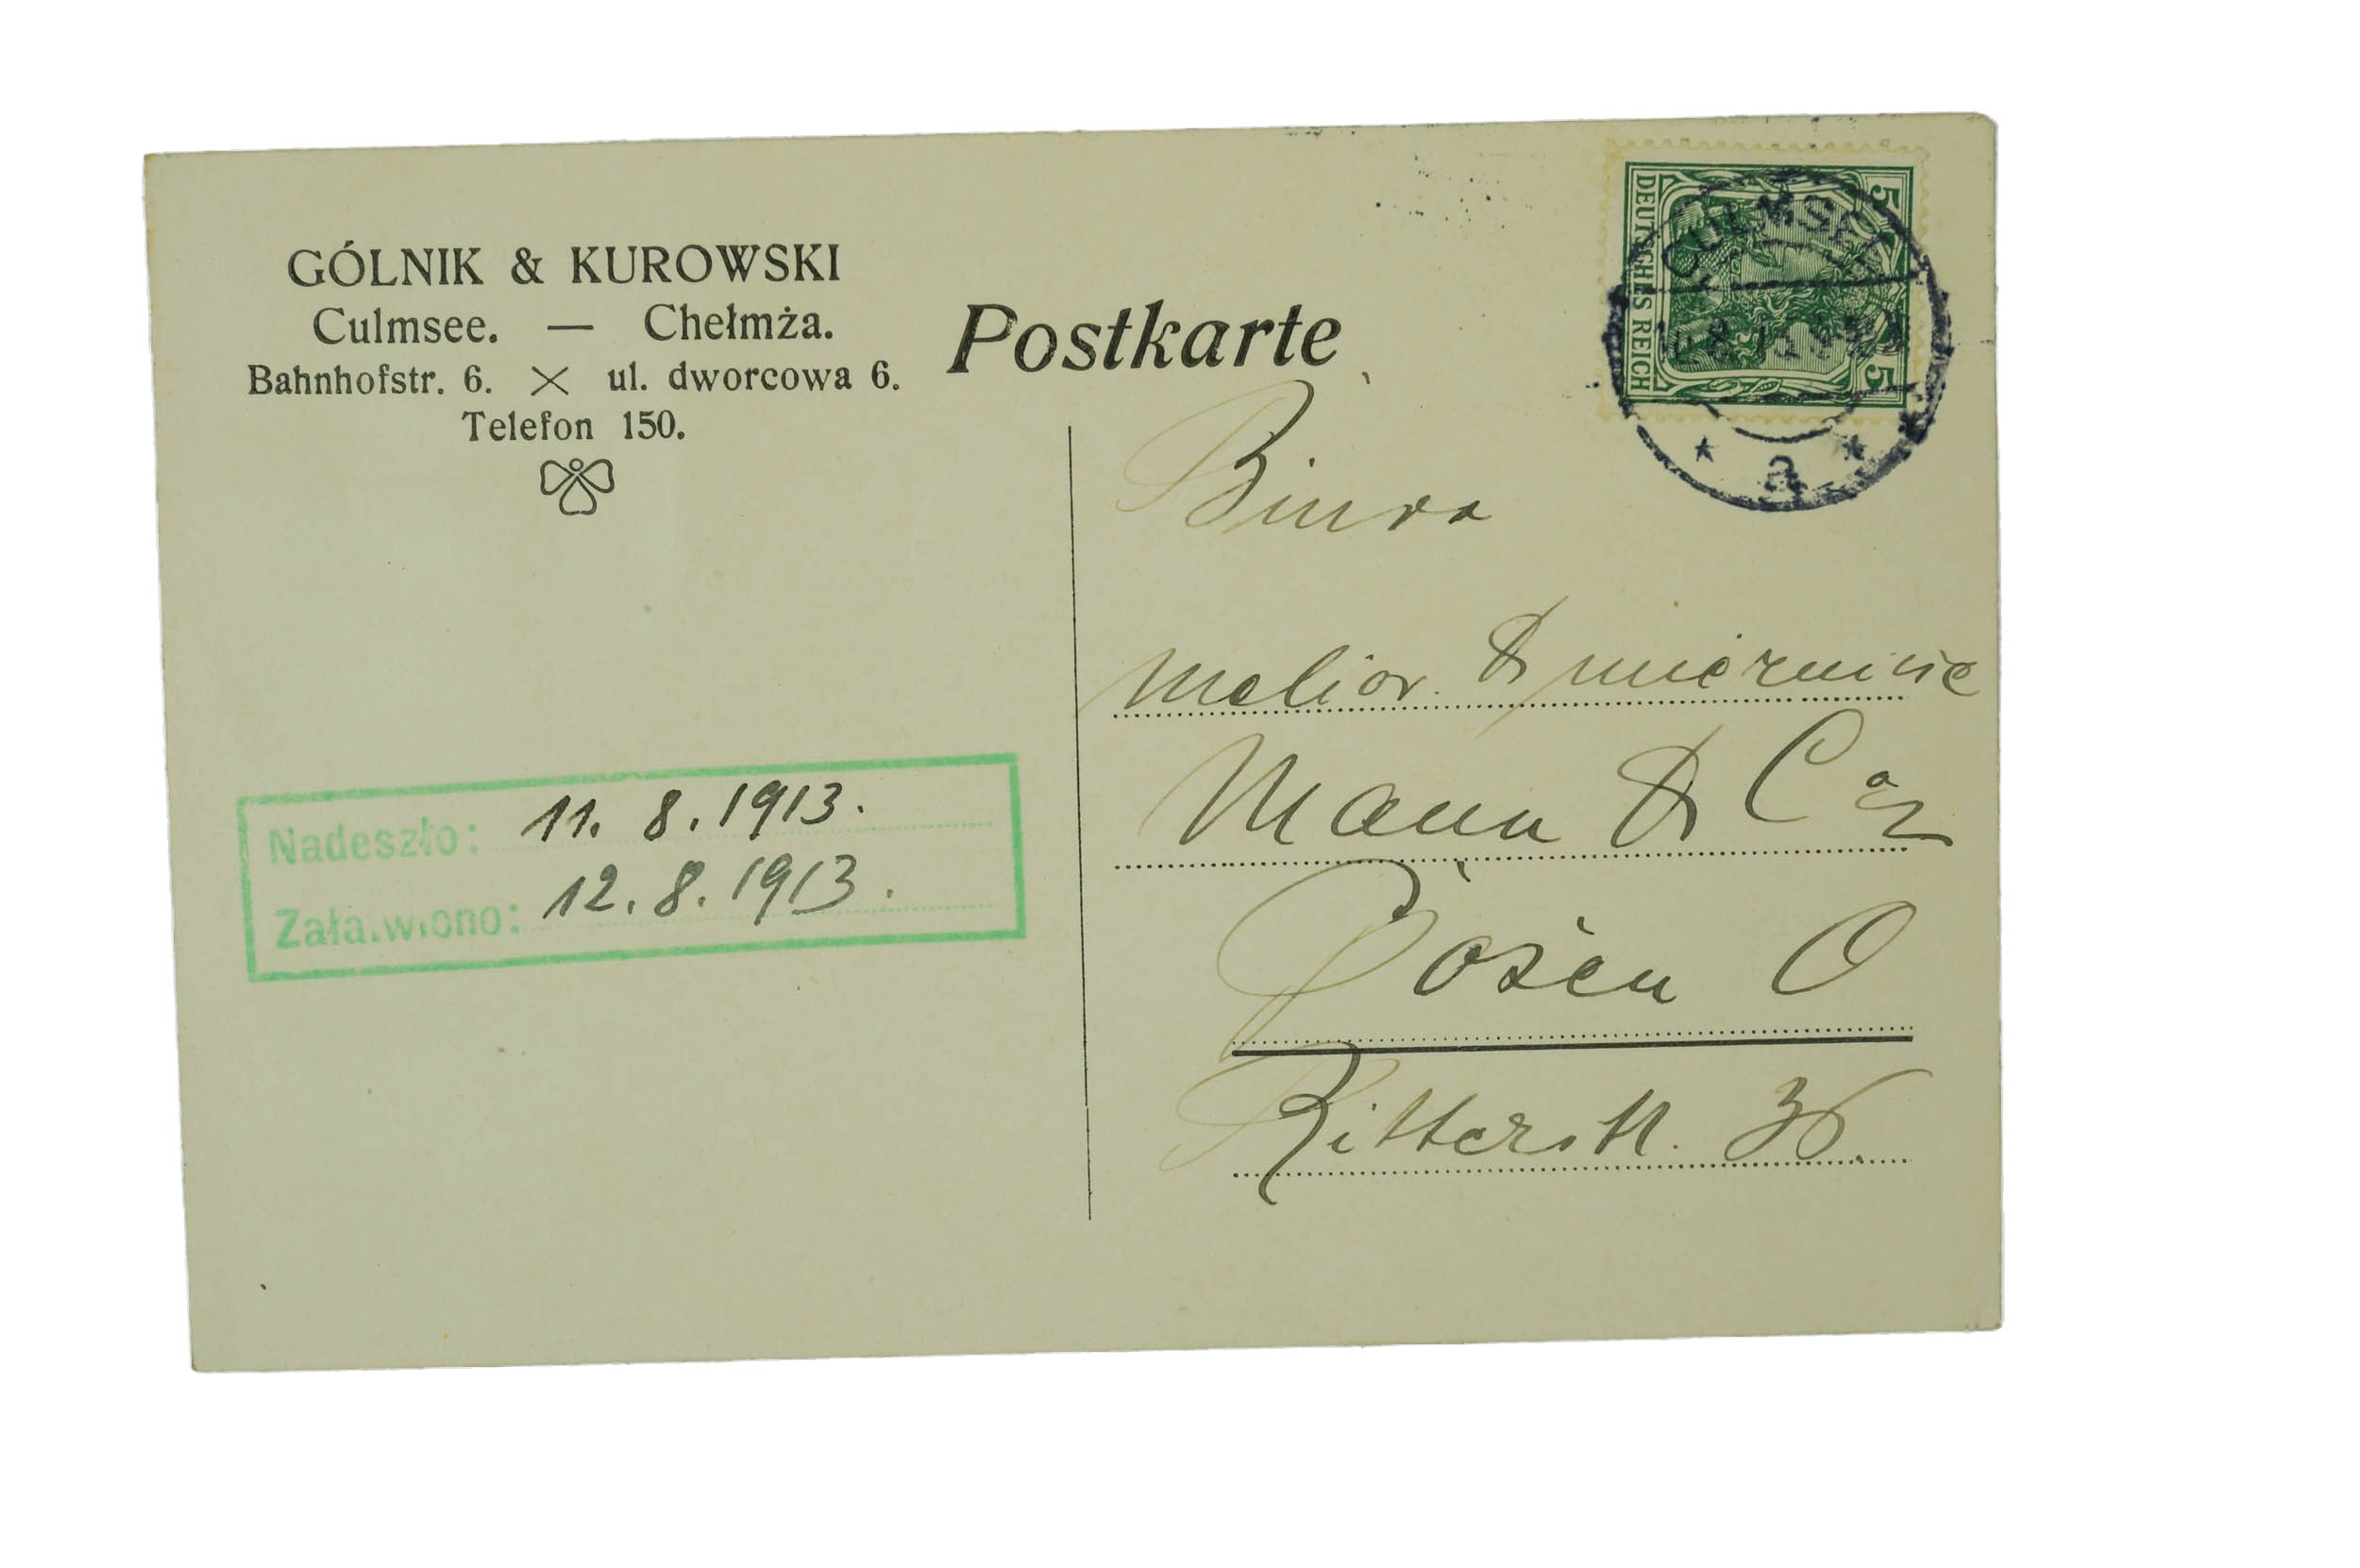 GÓLNIK & KUROWSKI
Culmsee. — Chełmża.
Bahnhofstr. 6. ul. dworcowa 6.
Telefon 150.
Postkarte
DEUTSCHES REICH
5 5
CULMSEE
a
Biura
Melior. & miernicze
Mann & Co
Posen O
Ritterstr. 36.
Nadeszło: 11. 8. 1913.
Załatwiono: 12. 8. 1913.